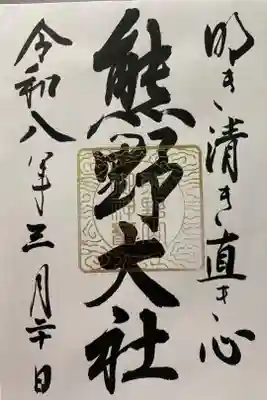 明き清き直き心
熊野大社
令和八年三月二十日